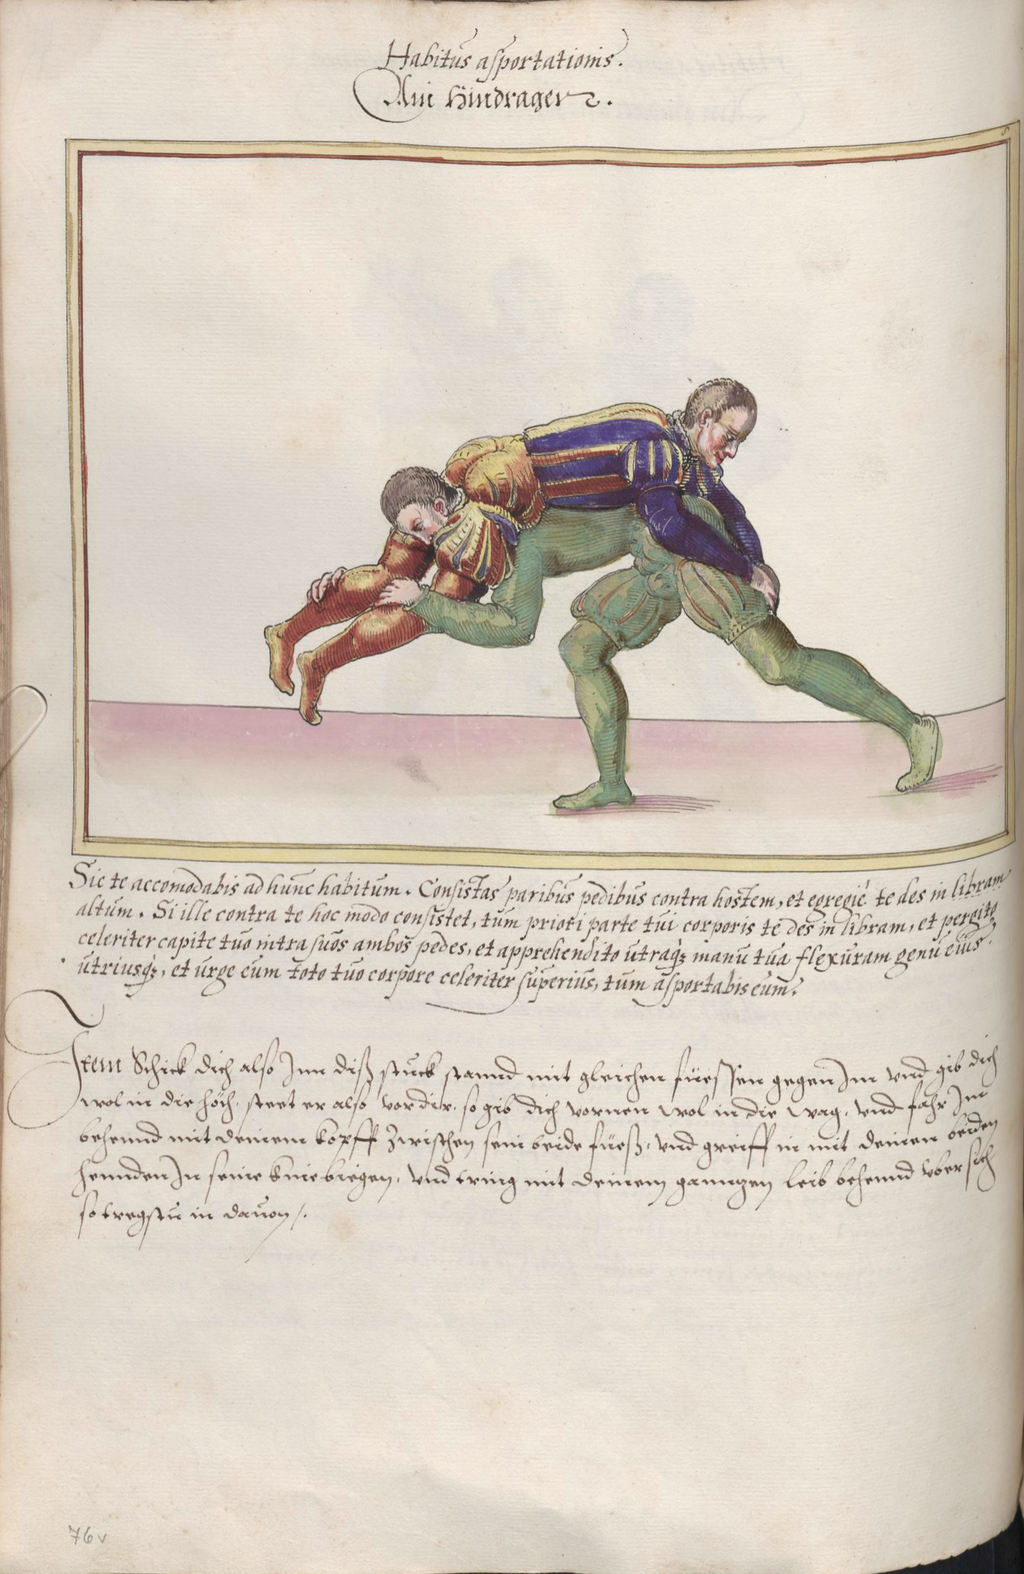 Habitus asportationis.
Ain hindrager.
Sic te accomodabis ad hunc habitum. Consistas paribus pedibus contra hostem, et egregié te des in libram
altum. Si ille contra te hoc modo consistet, tum priori parte tui corporis te des in libram, et pergito
celeriter capite tuo intra suos ambos pedes, et apprehendito utraqꝫ manu tua flexuram genu eius
utriusqꝫ, et urge eum toto tuo corpore celeriter superius, tum asportabis eum.
Item Schick dich also Inn diß stuck stannd mit gleichen füessen gegen Im vnd gib dich
wol in die höch, steet er also vor dir, so gib dich vornen wol in die wag, vnd fahr Im
behennd mit deinem kopff zwischen sein beide füeß, vnd greiff in mit deinen beiden
hennden In seine kniebiegen, vnd tring mit deinem ganntzen leib behennd vbersich
so tregstu in davon /.
76v